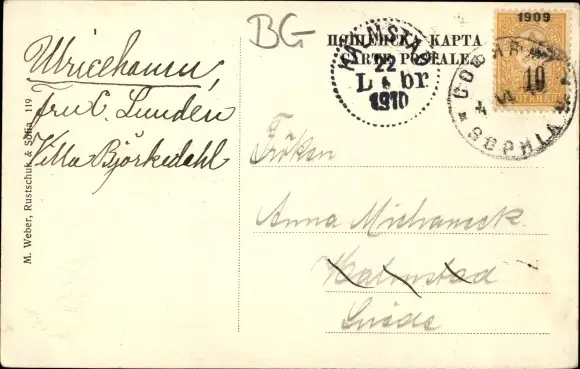 BG
ПОЩЕНСКА КАРТА
CARTE POSTALE
HALMSTAD
22
6
L br
1910
1909
10
SOPHIA
Ulricehamn,
Fru C. Lunden
Villa Björkedahl
Fröken
Anna Michaneck
Halmstad
Suède
M. Weber, Rustschuk & Sofia 119